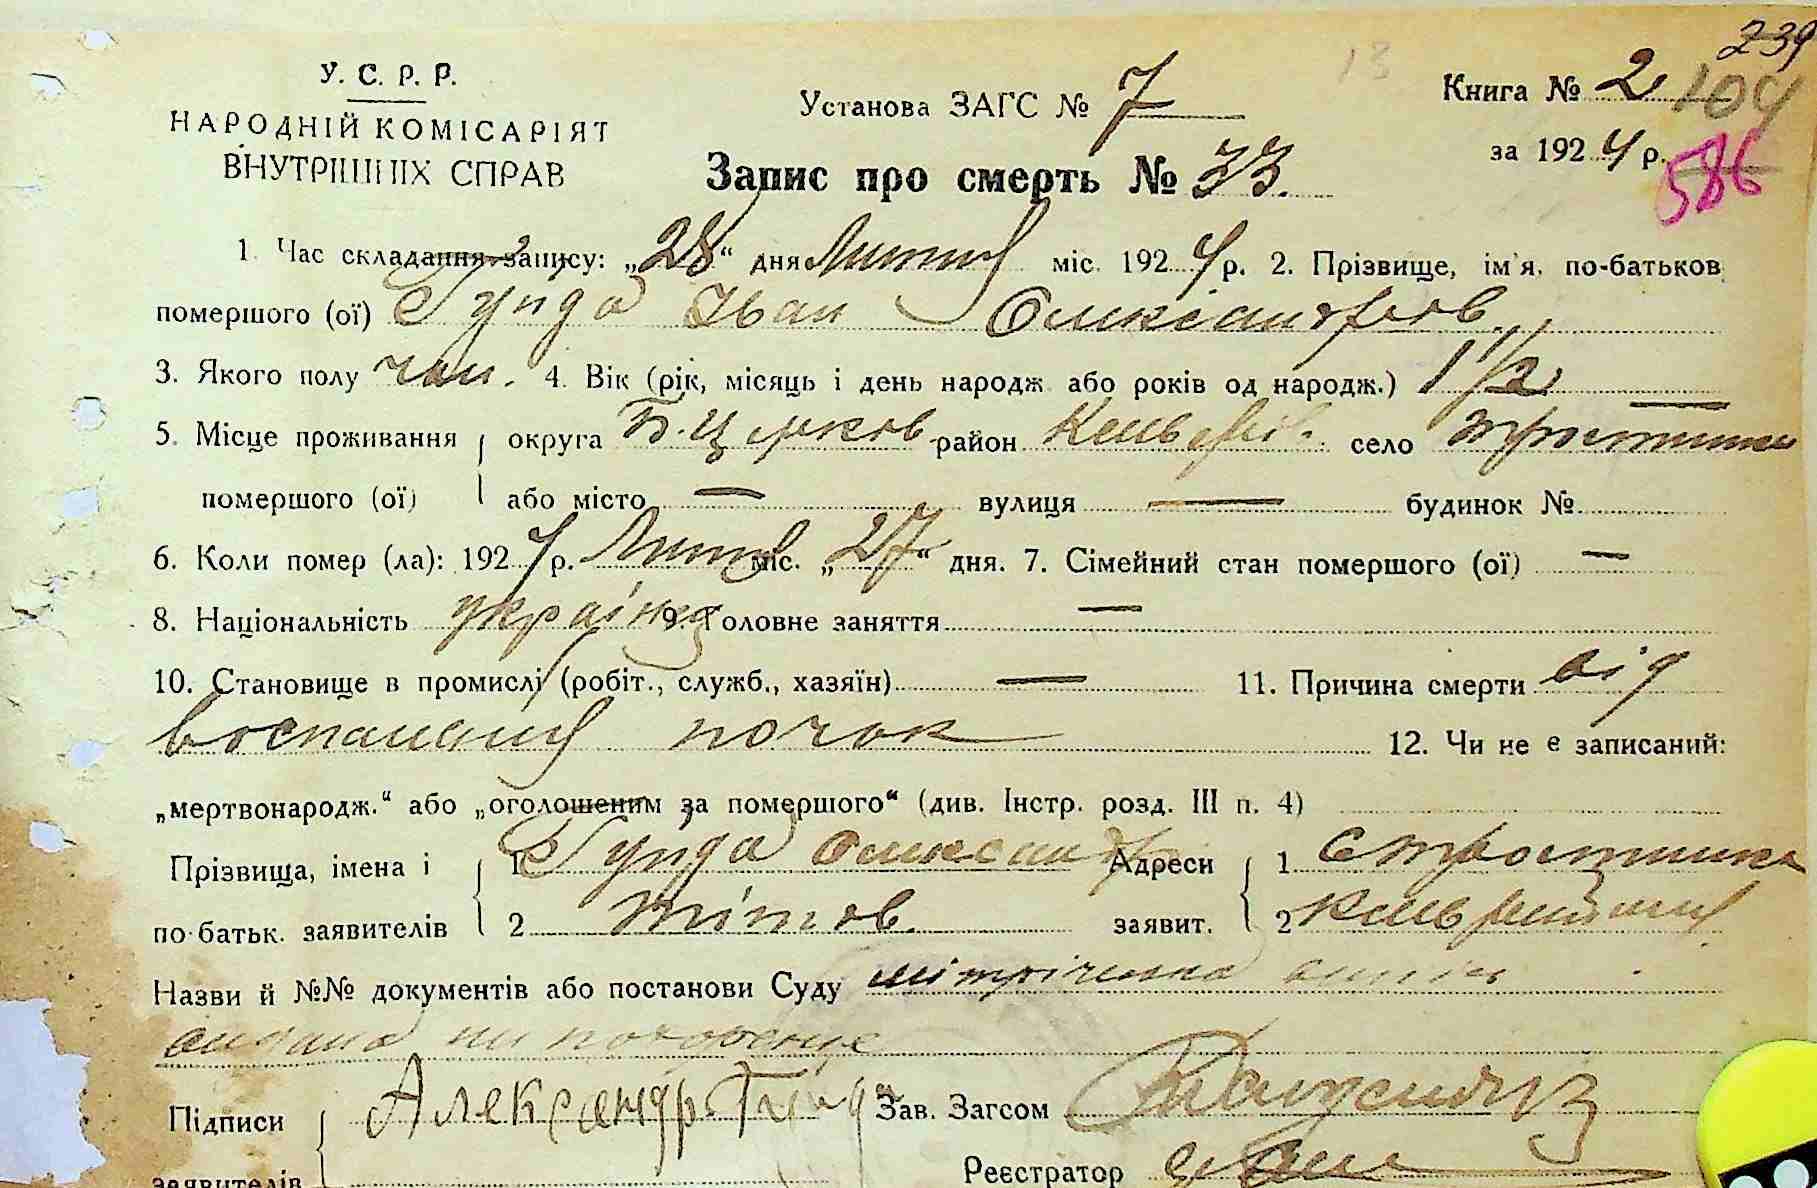 239
У. С. Р. Р. Установа ЗАГС № 7 13 Книга № 2 104
НАРОДНІЙ КОМІСАРІЯТ за 1924 р. 586
ВНУТРІШНІХ СПРАВ Запис про смерть № 33.
1. Час складання запису: „28“ дня Лютий міс. 1924 р. 2. Прізвище, ім'я, по-батьков
помершого (ої) Гунда Іван Олександров.
3. Якого полу чол. 4. Вік (рік, місяць і день народж. або років од народж.) 1 1/2
5. Місце проживання округа Б. Церков район село
помершого (ої) або місто — вулиця — будинок №
6. Коли помер (ла): 1924 р. міс. „27“ дня. 7. Сімейний стан помершого (ої) —
8. Національність україн 9. Головне заняття —
10. Становище в промислі (робіт., служб., хазяїн) — 11. Причина смерти від
воспаления почок 12. Чи не є записаний:
„мертвонародж.“ або „оголошеним за помершого“ (див. Інстр. розд. III п. 4)
Прізвища, імена і 1 Гунда Адреси 1
по-батьк. заявителів 2 Тітов. заявит. 2
Назви й №№ документів або постанови Суду
Підписи Александр Зав. Загсом
заявителів Реєстратор